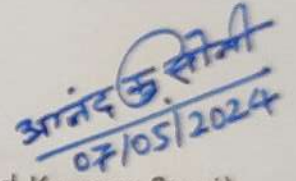 आनंद कु. सोनी
07/05/2024